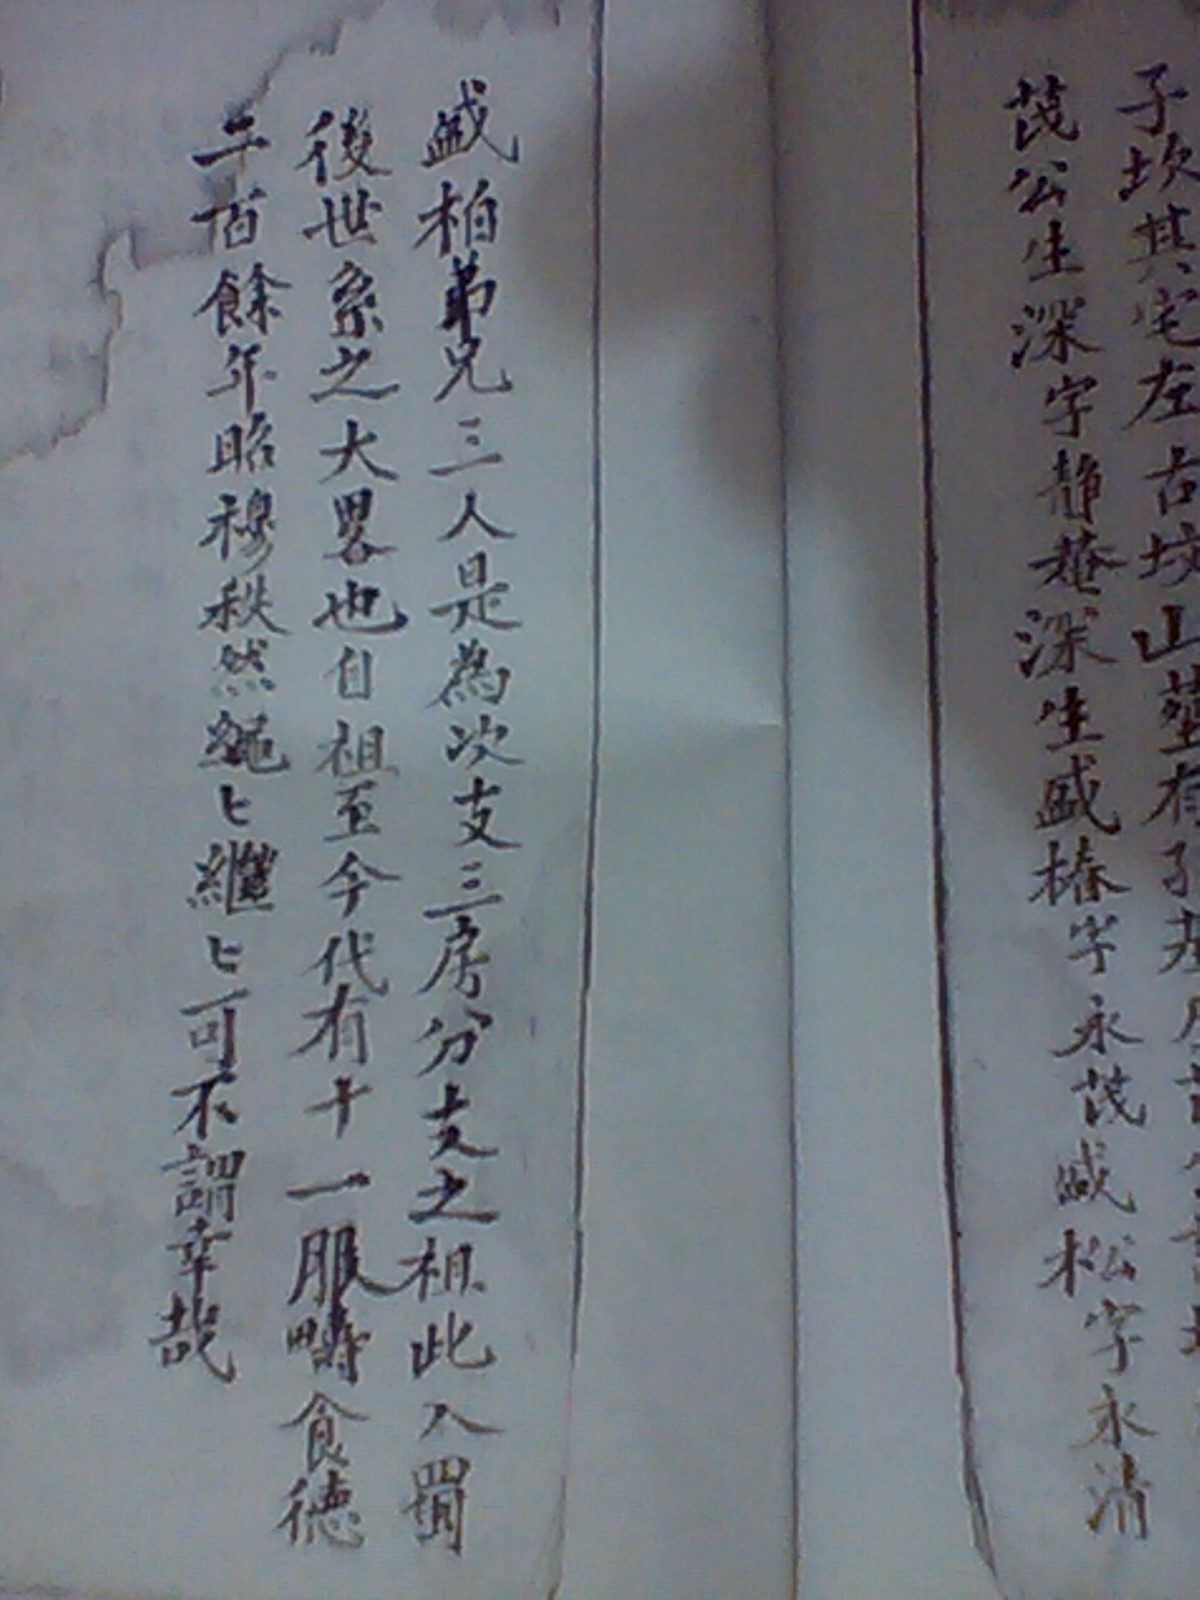 子坎其宅左古坟山塋有子基
茂公生深字静菴深生盛椿字永茂盛松字永清
盛柏弟兄三人是為次支三房分支之祖此入蜀
後世系之大畧也自祖至今代有十一服疇食德
二百餘年昭穆秩然繩〻繼〻可不謂幸哉